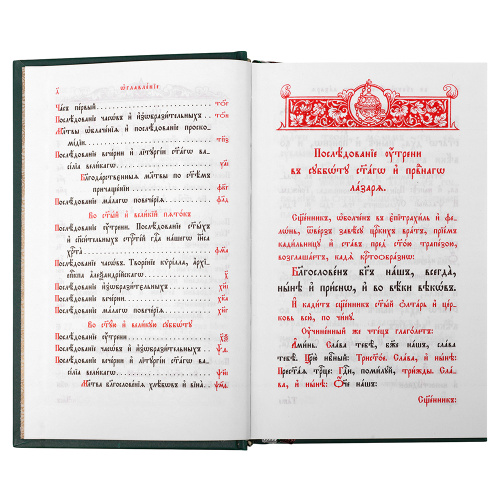 ѡ҆главле́нїе
Ча́съ пе́рвый
Послѣ́дованїе часѡ́въ и҆ и҆з̾ѡбрази́тельныхъ
Мл҃твы ѡ҆блаче́нїѧ и҆ послѣ́дованїе проско-
мі́дїи
Послѣ́дованїе вече́рни и҆ літꙋргі́и ст҃а́гѡ ва-
сі́лїа вели́кагѡ
Бл҃года́рственныѧ мл҃твы по ст҃ѣ́мъ
причаще́нїи
Послѣ́дованїе ма́лагѡ повече́рїѧ
Во ст҃ы́й и҆ вели́кїй пѧто́къ
Послѣ́дованїе оу҆́трени. Послѣ́дованїе ст҃ы́хъ
и҆ сп҃си́тельныхъ страсте́й гдⷭ҇а на́шегѡ і҆и҃са
хрⷭ҇та̀
Послѣ́дованїе часѡ́въ. Творе́нїе кѷрі́лла, а҆рхї-
є҆пⷭ҇кпа а҆леѯандрі́йскагѡ
Послѣ́дованїе и҆з̾ѡбрази́тельныхъ
Послѣ́дованїе вече́рни
Послѣ́дованїе ма́лагѡ повече́рїѧ
Во ст҃ꙋ́ю и҆ вели́кꙋю сꙋббѡ́тꙋ
Послѣ́дованїе оу҆́трени
Послѣ́дованїе часѡ́въ и҆ и҆з̾ѡбрази́тельныхъ
Послѣ́дованїе вече́рни и҆ літꙋргі́и ст҃а́гѡ ва-
сі́лїа вели́кагѡ
Мл҃тва благослове́нїѧ хлѣ́бѡвъ и҆ вїна̀
Послѣ́дованїе оу҆́трени
въ сꙋббѡ́тꙋ ст҃а́гѡ и҆ првⷣнагѡ
ла́зарѧ.
Сщ҃е́нникъ, ѡ҆болче́нъ въ є҆пїтрахи́ль и҆ фе-
ло́нь, ѿве́рзъ завѣ́сꙋ цр҃кихъ вра́тъ, прїе́мъ
кади́льницꙋ и҆ ста́въ пред̾ ст҃о́ю трапе́зою,
возглаша́етъ, кадѧ̀ крⷭ҇тоѡбра́знѡ:
Благослове́нъ бг҃ъ на́шъ, всегда̀,
ны́нѣ и҆ при́снѡ, и҆ во вѣ́ки вѣкѡ́въ.
И҆ кади́тъ сщ҃е́нникъ ст҃ы́й ѻ҆лта́рь и҆ це́р-
ковь всю̀, по чи́нꙋ.
Оу҆чине́нный же чте́цъ глаго́летъ:
А҆ми́нь. Сла́ва тебѣ̀, бж҃е на́шъ, сла́ва
тебѣ̀. Цр҃ю̀ нбⷭ҇ный: Трист҃о́е. Сла́ва, и҆ ны́нѣ:
Прест҃а́ѧ трⷪ҇це: Гдⷭ҇и, поми́лꙋй, три́жды. Сла́-
ва, и҆ ны́нѣ: Ѻ҆́ч҃е на́шъ:
Сщ҃е́нникъ: